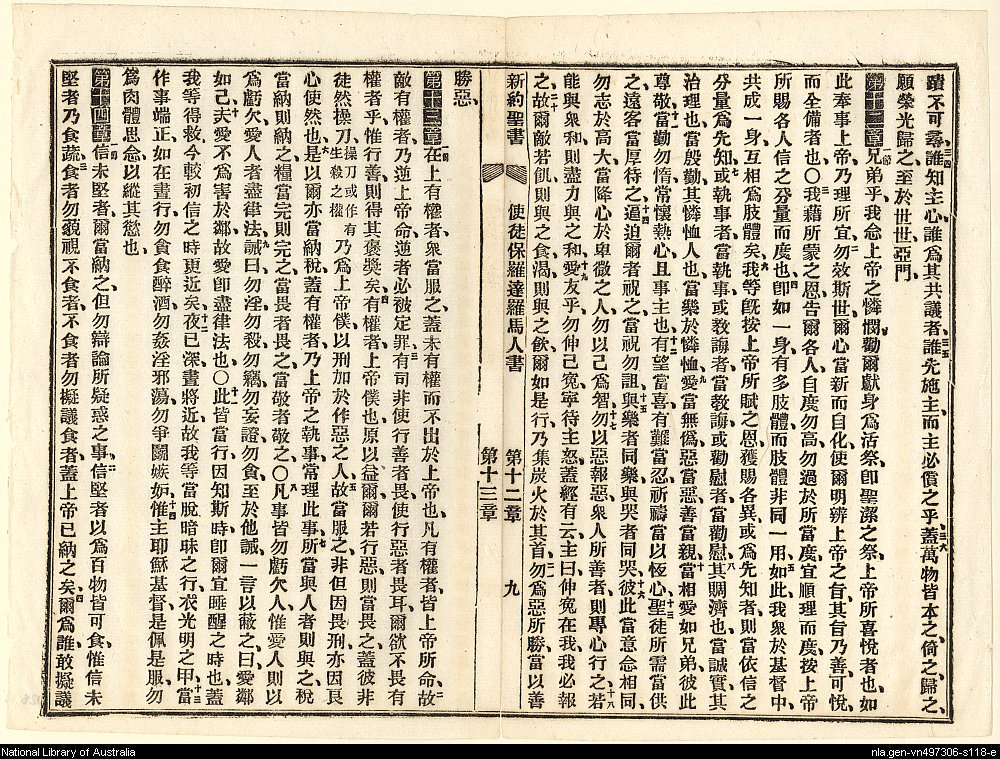 蹟不可尋、三四誰知主心、誰爲其共議者、三五誰先施主、而主必償之乎、三六蓋萬物皆本之、倚之、歸之、
願榮光歸之、至於世世、亞門、
第十二章一節兄弟乎、我念上帝之憐憫、勸爾獻身爲活祭、卽聖潔之祭、上帝所喜悅者也、如
此奉事上帝、乃理所宜、二勿效斯世、爾心當新而自化、使爾明辨上帝之旨、其旨乃善、可悅、
而全備者也、〇三我藉所蒙之恩、告爾各人、自度勿高、勿過於所當度、宜順理而度、按上帝
所賜各人信之分量而度也、四卽如一身有多肢體、而肢體非同一用、五如此、我衆於基督中、
共成一身、互相爲肢體矣、六我等旣按上帝所賦之恩、獲賜各異、或爲先知者、則當依信之
分量爲先知、七或執事者、當執事、或教誨者、當教誨、八或勸慰者、當勸慰、其賙濟也當誠實、其
治理也當殷勤、其憐恤人也、當樂於憐恤、九愛當無僞、惡當惡、善當親、十當相愛如兄弟、彼此
尊敬、十一當勤勿惰、常懷熱心、且事主也、十二有望當喜、有難當忍、祈禱當以恆心、十三聖徒所需當供
之、遠客當厚待之、十四逼迫爾者、祝之、當祝勿詛、十五與樂者同樂、與哭者同哭、十六彼此當意念相同、
勿志於高大、當降心於卑微之人、勿以己爲智、十七勿以惡報惡、衆人所善者、則專心行之、十八若
能與衆和、則盡力與之和、十九愛友乎、勿伸己冤、寧待主怒、蓋經有云、主曰、伸冤在我、我必報
之、二十故爾敵若飢、則與之食、渴、則與之飲、爾如是行、乃集炭火於其首、二一勿爲惡所勝、當以善
新約聖書 使徒保羅達羅馬人書 第十二章 九
第十三章
勝惡、
第十三章一節在上有權者、衆當服之、蓋未有權而不出於上帝也、凡有權者、皆上帝所命、二故
敵有權者、乃逆上帝命、逆者必被定罪、三有司非使行善者畏、使行惡者畏耳、爾欲不畏有
權者乎、惟行善則得其褒獎矣、四有權者、上帝僕也、原以益爾、爾若行惡則當畏之、蓋彼非
徒然操刀、操刀或作有生殺之權乃爲上帝僕、以刑加於作惡之人、五故當服之、非但因畏刑、亦因良
心使然也、六是以爾亦當納稅、蓋有權者乃上帝之執事、常理此事、七所當與人者則與之、稅
當納則納之、糧當完則完之、當畏者畏之、當敬者敬之、〇八凡事皆勿虧欠人、惟愛人則以
爲虧欠、愛人者盡律法、九誡曰、勿淫、勿殺、勿竊、勿妄證、勿貪、至於他誡、一言以蔽之、曰、愛鄰
如己、十夫愛不爲害於鄰、故愛卽盡律法也、〇十一此皆當行、因知斯時卽爾宜睡醒之時也、蓋
我等得救、今較初信之時更近矣、十二夜已深、晝將近、故我等當脫暗昧之行、衣光明之甲、十三當
作事端正、如在晝行、勿貪食醉酒、勿姦淫邪蕩、勿爭鬭嫉妒、十四惟主耶穌基督是佩、是服、勿
爲肉體思念、以縱其慾也、
第十四章一節信未堅者、爾當納之、但勿辯論所疑惑之事、二信堅者、以爲百物皆可食、惟信未
堅者、乃食蔬、三食者勿藐視不食者、不食者勿擬議食者、蓋上帝已納之矣、四爾爲誰、敢擬議
National Library of Australia
nla.gen-vn497306-s118-e